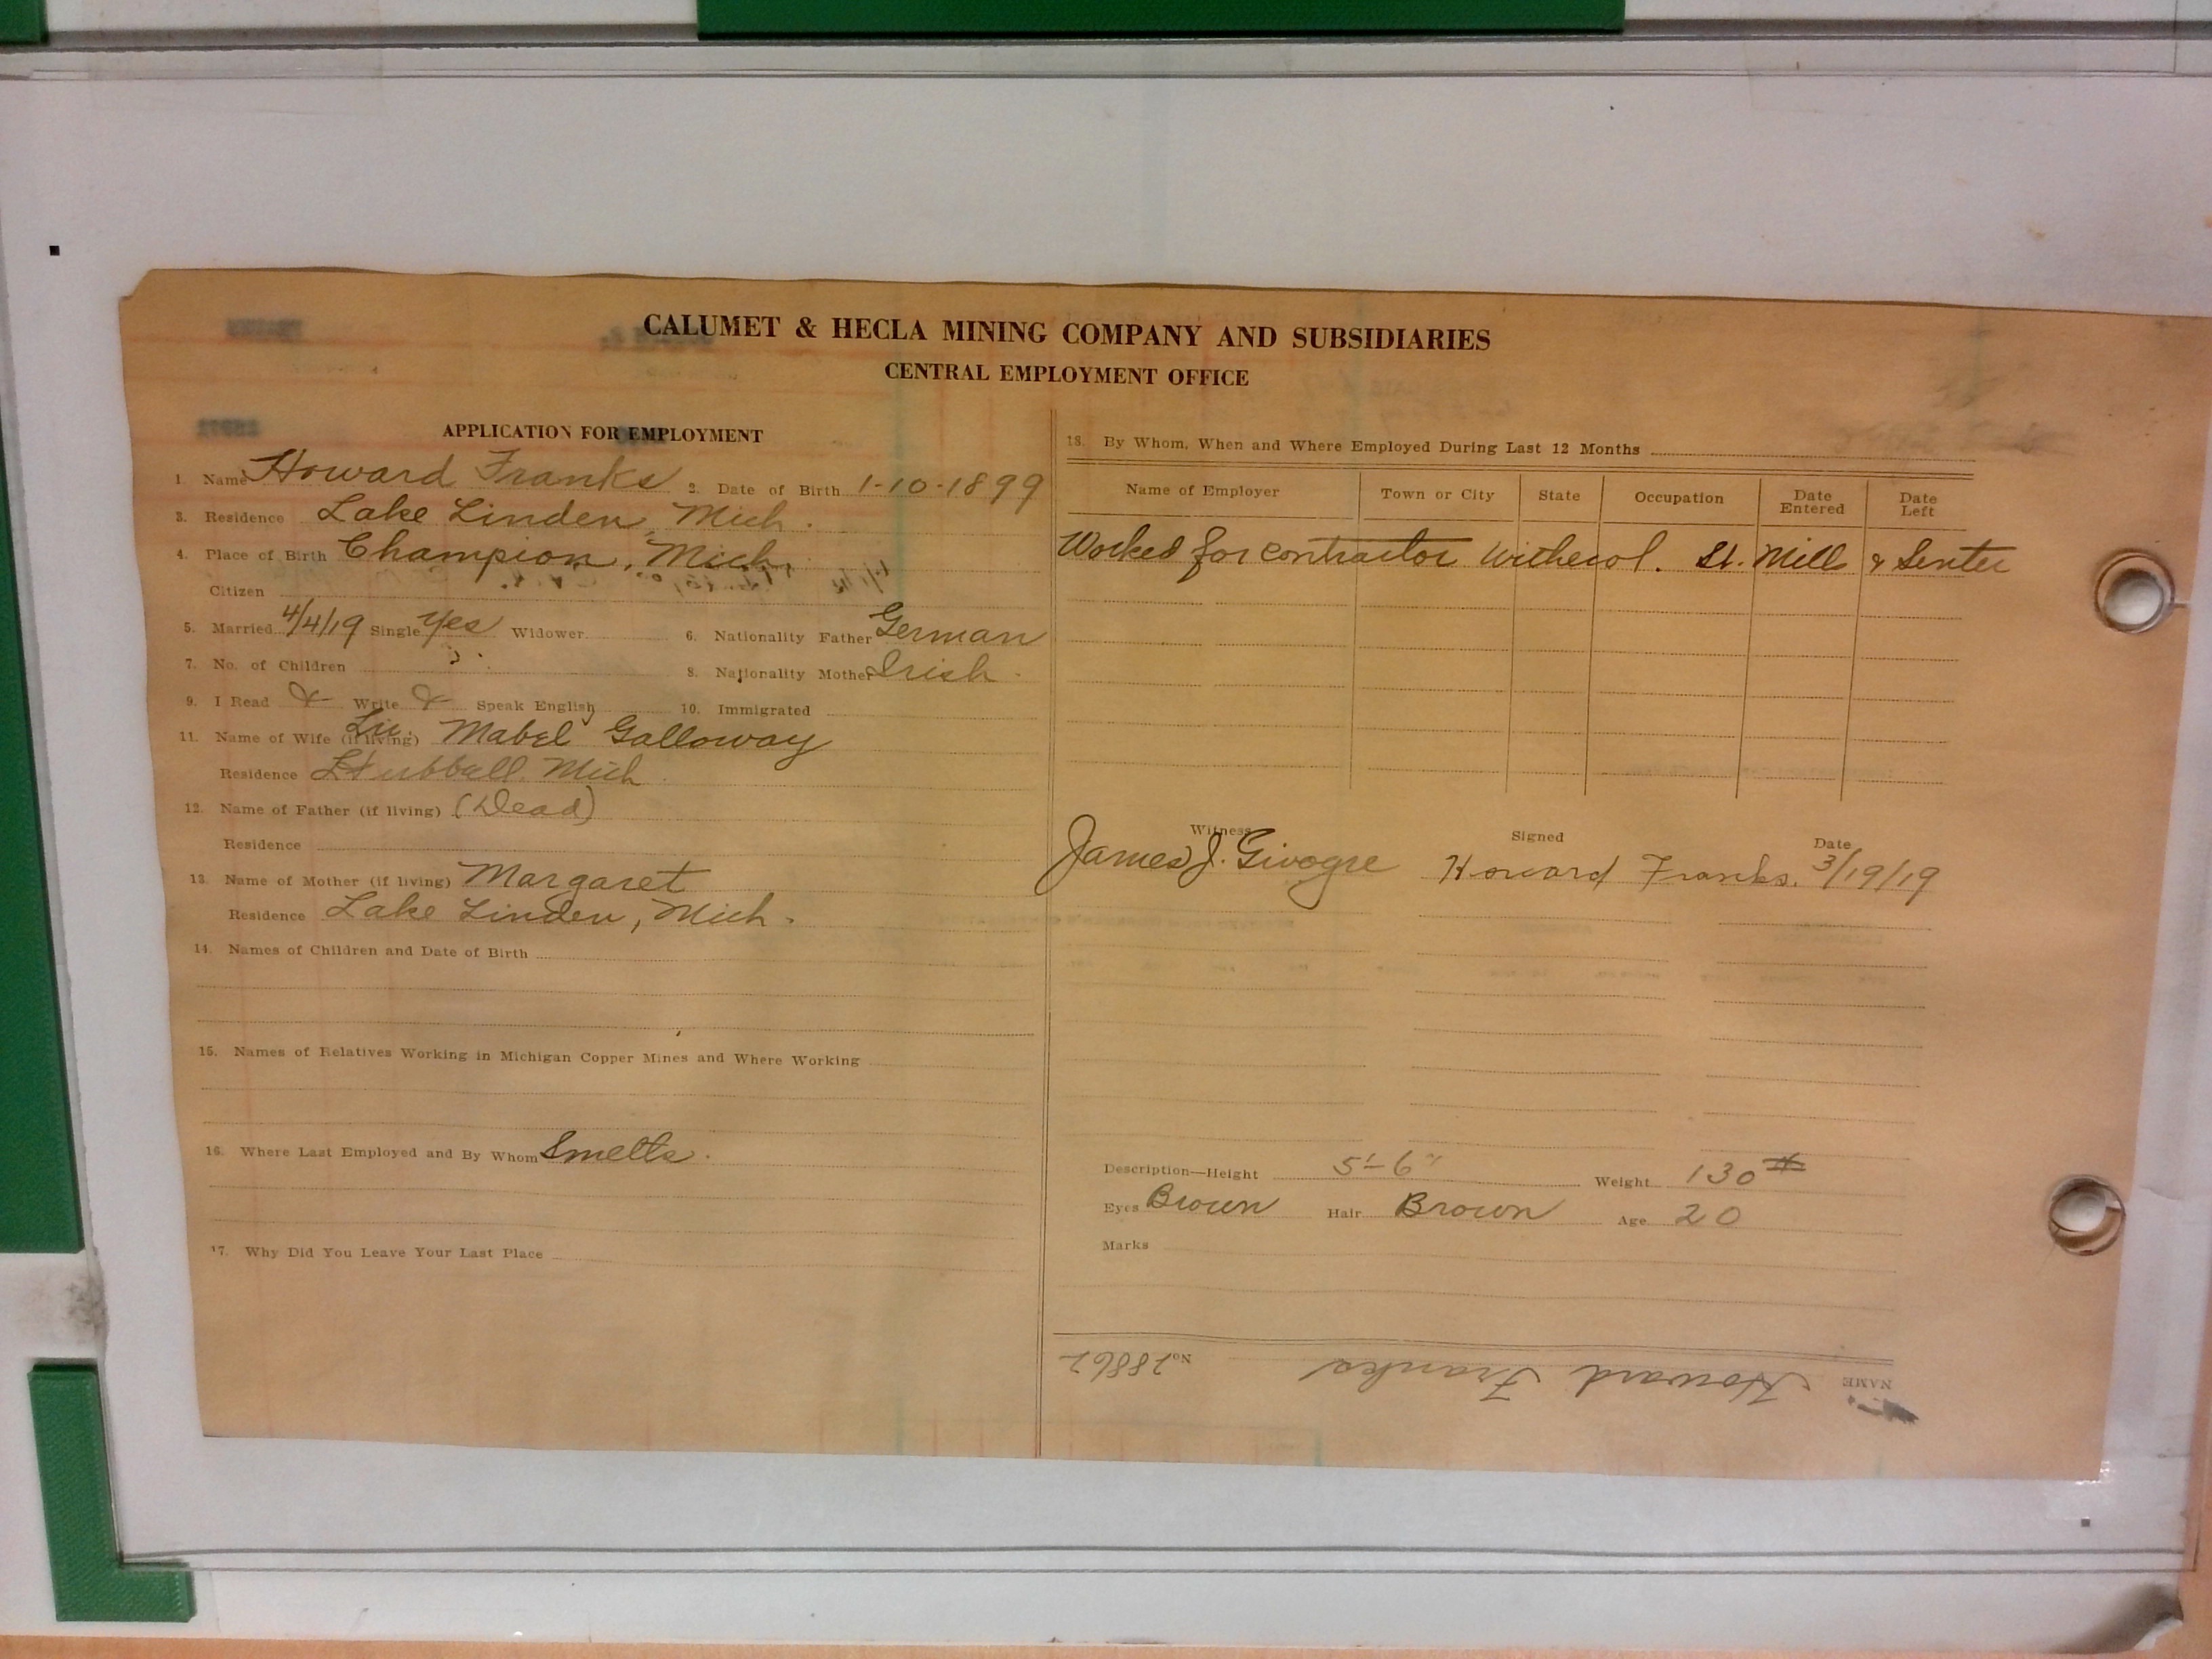 CALUMET & HECLA MINING COMPANY AND SUBSIDIARIES
CENTRAL EMPLOYMENT OFFICE
APPLICATION FOR EMPLOYMENT
1. Name Howard Franks 2. Date of Birth 1-10-1899
3. Residence Lake Linden, Mich.
4. Place of Birth Champion, Mich.
Citizen
5. Married 4/4/19 Single Yes Widower
6. Nationality Father German
7. No. of Children
8. Nationality Mother Irish
9. I Read & Write & Speak English 10. Immigrated
11. Name of Wife (if living) Mabel Galloway
Residence Hubbell Mich
12. Name of Father (if living) (Dead)
Residence
13. Name of Mother (if living) Margaret
Residence Lake Linden, Mich.
14. Names of Children and Date of Birth
15. Names of Relatives Working in Michigan Copper Mines and Where Working
16. Where Last Employed and By Whom Smelts.
17. Why Did You Leave Your Last Place
18. By Whom, When and Where Employed During Last 12 Months
Name of Employer Town or City State Occupation Date Entered Date Left
Worked for contractor St. Mill & Senter
Witness Signed Date
James J. Givogre Howard Franks. 3/19/19
Description—Height 5'-6" Weight 130 #
Eyes Brown Hair Brown Age 20
Marks
NAME Howard Franks No. 28862